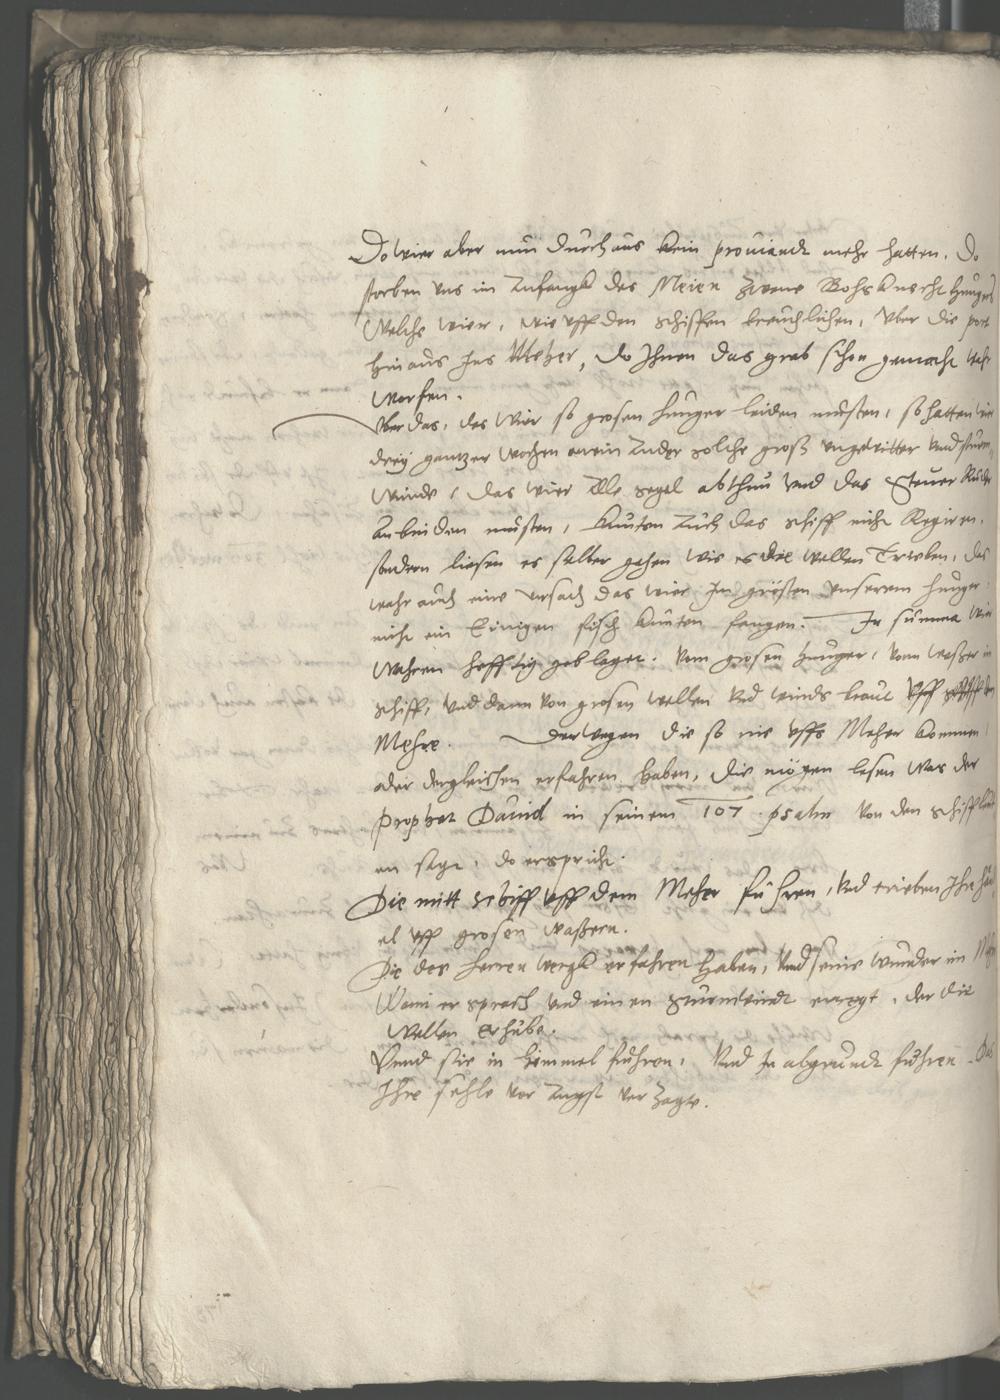 Do wier aber nun durchaus kein prouiandt mehr hatten. Do
storben vns im Anfangk des Meien zwene Bohsknecht hungers
Welche wier, wie vff den schiffen breuchlichen, vber die port
hinaus Jns Meher, do Jhnen das grab schon gemacht wahr
worfen.
Vber das, das wier so grosen hunger leiden musten, so hatten wier
dreÿ gantzer wochen an ein Ander solche groß vngewitter vnd sturm
winde, das wier Alle segel abthun vnd das Steuer Ruder
anbinden musten, kunten Auch das schiff nicht Regiren,
sondern liesen es selber gehen wie es die wellen Trieben, das
wahr auch eine vrsach das wier Jn grösten vnserem hunger
nicht ein Einigen fisch kunten fangen. Jn summa wier
Wahren hefftig geblaget. Vom grosen hunger, vom waßer im
schiff, vnd dann von grosen wellen vnd winds braut vff dem
Mehre. Derwegen die so nie vffs Meher kommen
oder dergleichen erfahren haben, die mögen lesen was der
prophet Dauid in seinem 107 psalm von den schiffleut
en sagt, do er spricht.
Die mitt schiff vff dem Meher fuhren, vnd trieben Jhr hand
el vff grosen waßern.
Die des Herren wergk erfahren haben, vnd seine wunder im Meher
Wann er sprach vnd einen sturmwindt erregt, der die
wellen Erhube.
Vnnd sie in himmel fuhren, vnd Jn abgrundt fuhren Das
Jhre sehle vor Angst verzagte.